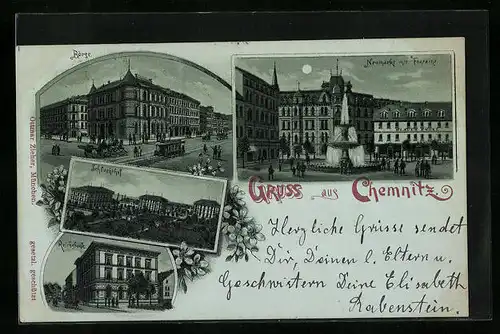 Börse
Neumarkt mit Fontaine
Schlossteich
Reichsbank
Gruss aus Chemnitz.
Herzliche Grüsse sendet
Dir, Deinen l. Eltern u.
Geschwistern Deine Elisabeth
Rabenstein.
Ottmar Zieher, München. gesetzl. geschützt